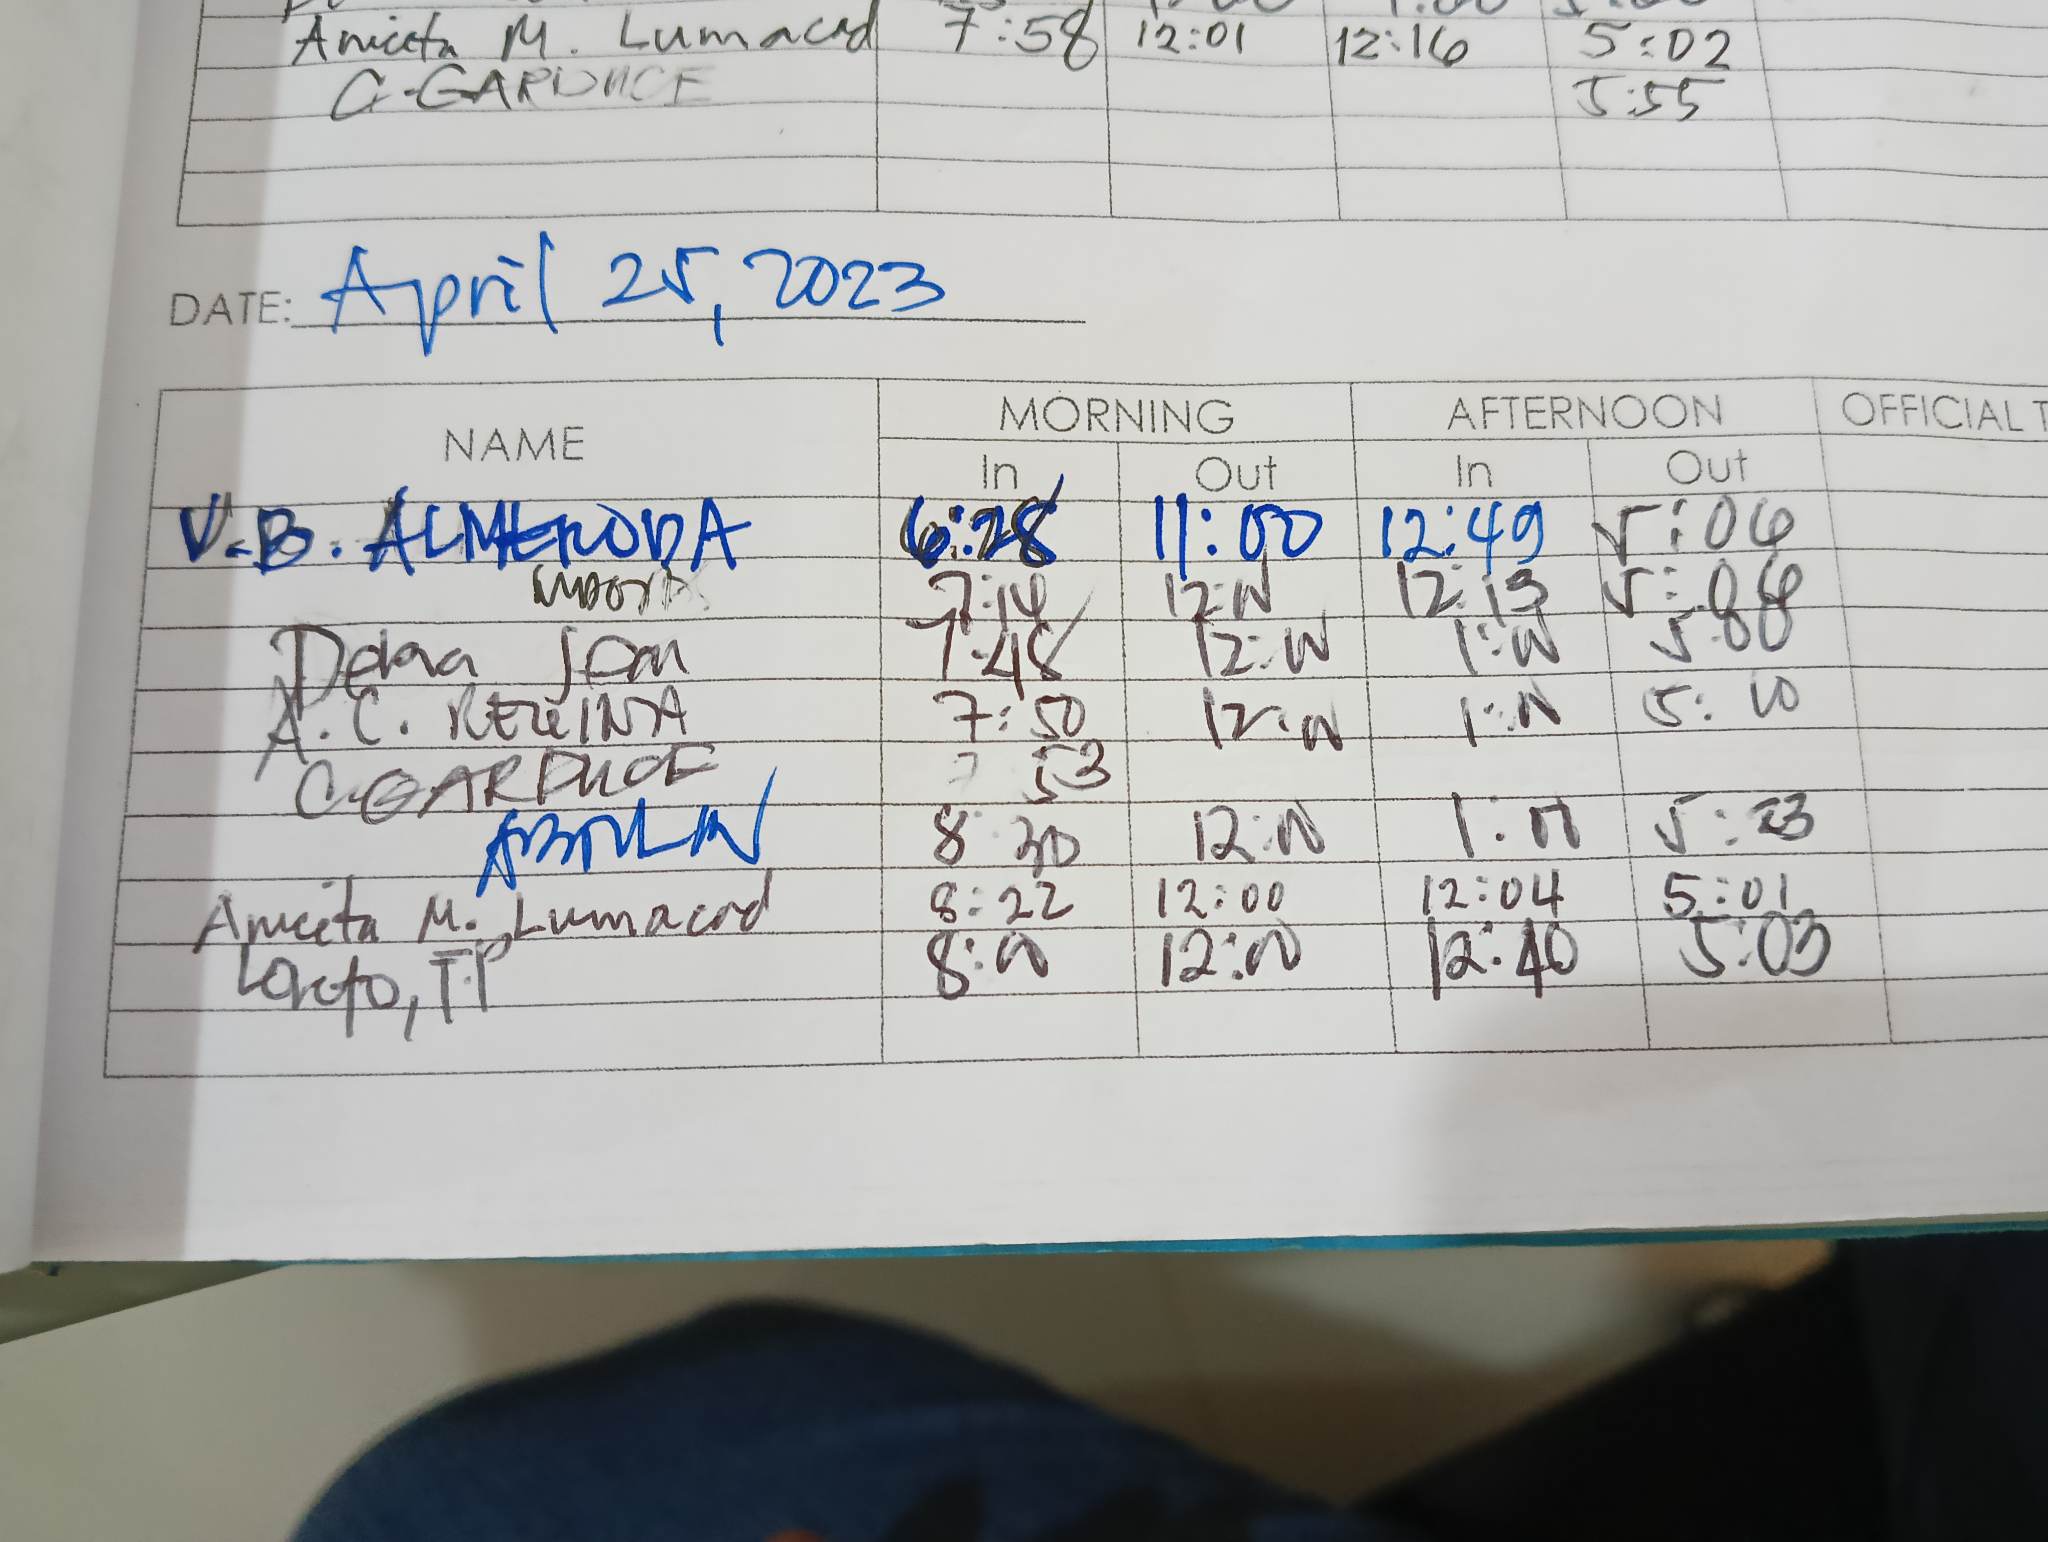 Aniceta M. Lumacad 7:58 12:01 12:16 5:02
C. GARDUCE 5:55
DATE: April 25, 2023
NAME MORNING AFTERNOON OFFICIAL T
In Out In Out
V.B. ALMERODA 6:28 11:00 12:49 5:06
7:14 12:00 12:13 5:06
7:48 12:00 1:00 5:08
A.C. 7:50 12:00 1:00 5:10
C. GARDUCE 7:53
8:30 12:00 1:00 5:23
Aniceta M. Lumacad 8:22 12:00 12:04 5:01
Loreto, T.P 8:00 12:00 12:40 5:03